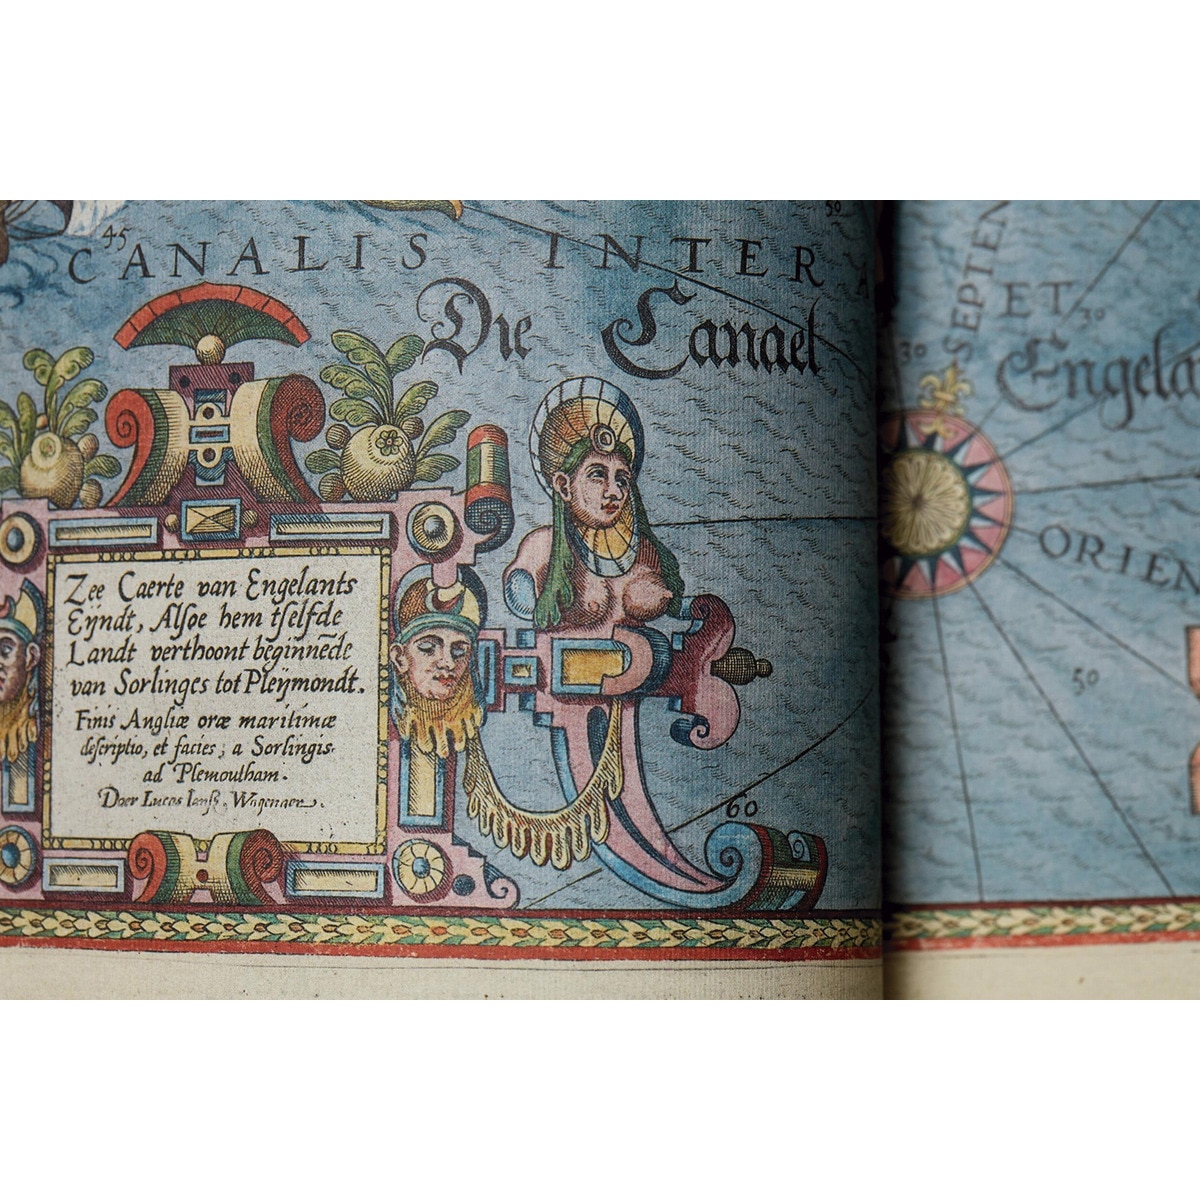 45
50
CANALIS INTER A
Die Canael
Zee Caerte van Engelants
Eijndt, Alsoe hem tselfde
Landt verthoont beginnēde
van Sorlinges tot Pleijmondt.
Finis Angliæ oræ maritimæ
descriptio, et facies; a Sorlingis
ad Plemoutham.
Doer Lucas Janß. Wagenaer.
60
SEPTEN
ET
30
30
Engela
ORIEN
50